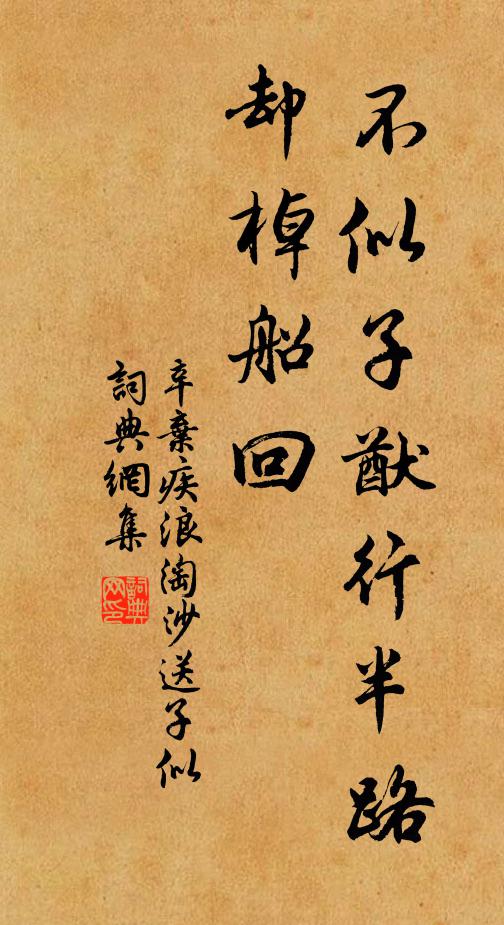 不似子猷行半路
却棹船回
辛棄疾浪淘沙送子似
詞典網集
詞典网印